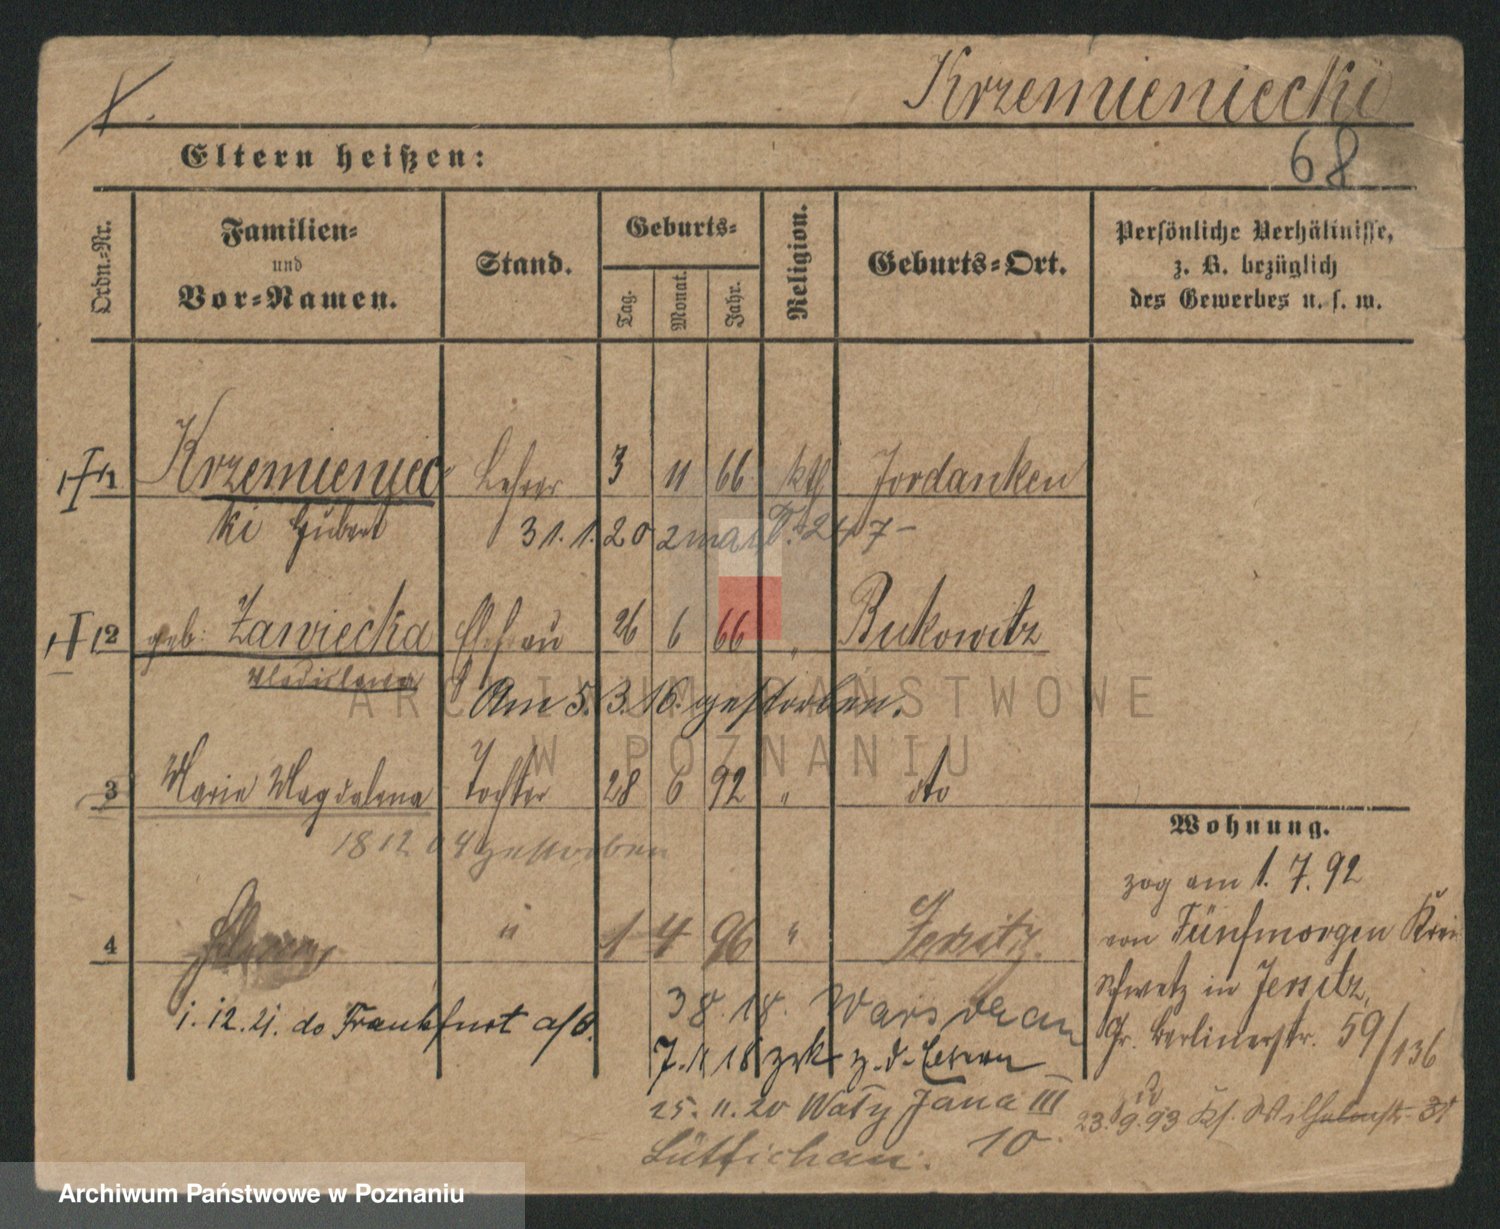 Krzemieniecki
68
Eltern heißen:
Ordn.-Nr.
Familien-
und
Vor-Namen.
Stand.
Geburts-
Tag.
Monat.
Jahr.
Religion.
Geburts-Ort.
Persönliche Verhältnisse,
z. B. bezüglich
des Gewerbes u. s. w.
1 Krzemieniec Lehrer 3 11 66 kth Jordanken
ki Hubert 31.1.20 2 mal 7 -
2 geb. Zawiecka Ehefrau 26 6 66 " Bukowitz
Wladislawa
Am 5.3.16. gestorben.
3 Marie Magdalena Tochter 28 6 92 " dto
18 12 04 gestorben
4 " 1 4 96 " Jersitz.
1.12.21. do Frankfurt a/O.
3 8.18. Warschau
7.11 18 zrk z. d. Eltern
25.11.20 Waly Jana III
10.
Wohnung.
zog am 1.7.92
von Fünfmorgen Kreis
Schwetz in Jersitz,
Gr. Berlinerstr. 59/136
23.9.93 Ks. Wilhelmstr. 31
ARCHIWUM PAŃSTWOWE
W POZNANIU
Archiwum Państwowe w Poznaniu